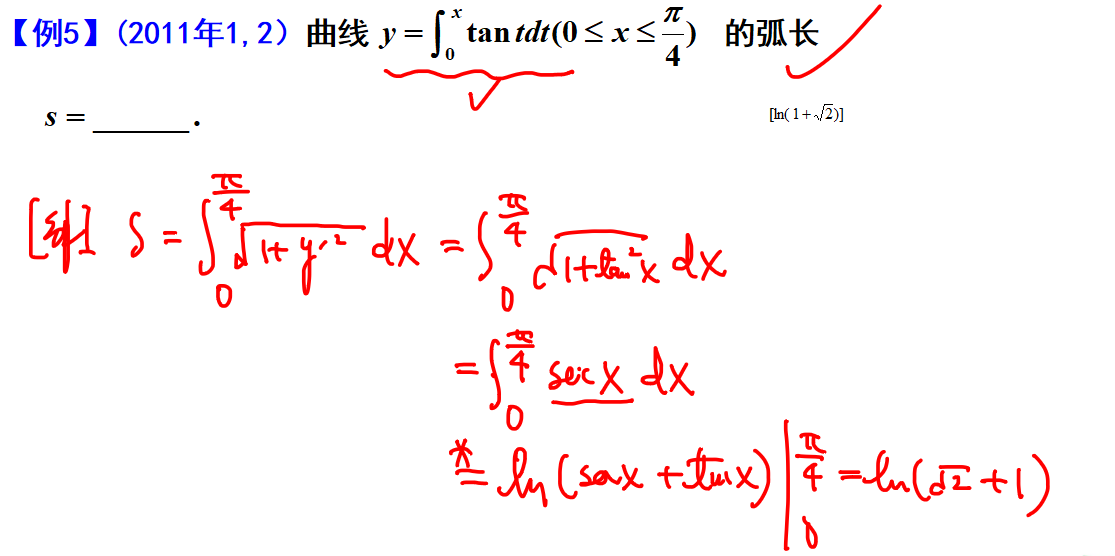 【例5】(2011年1,2) 曲线 y = ∫₀ˣ tan tdt(0 ≤ x ≤ π/4) 的弧长
s = ______ .
[ln(1+√2)]
[解] S = ∫₀^(π/4) √(1+y′²) dx = ∫₀^(π/4) √(1+tan²x) dx
= ∫₀^(π/4) sec x dx
*= ln(secx + tanx) |₀^(π/4) = ln(√2 + 1)